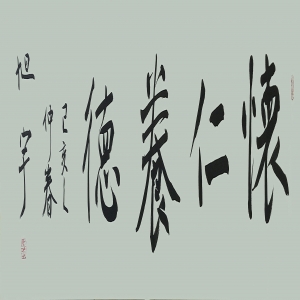 懷仁養德
己亥之
仲春
旭宇